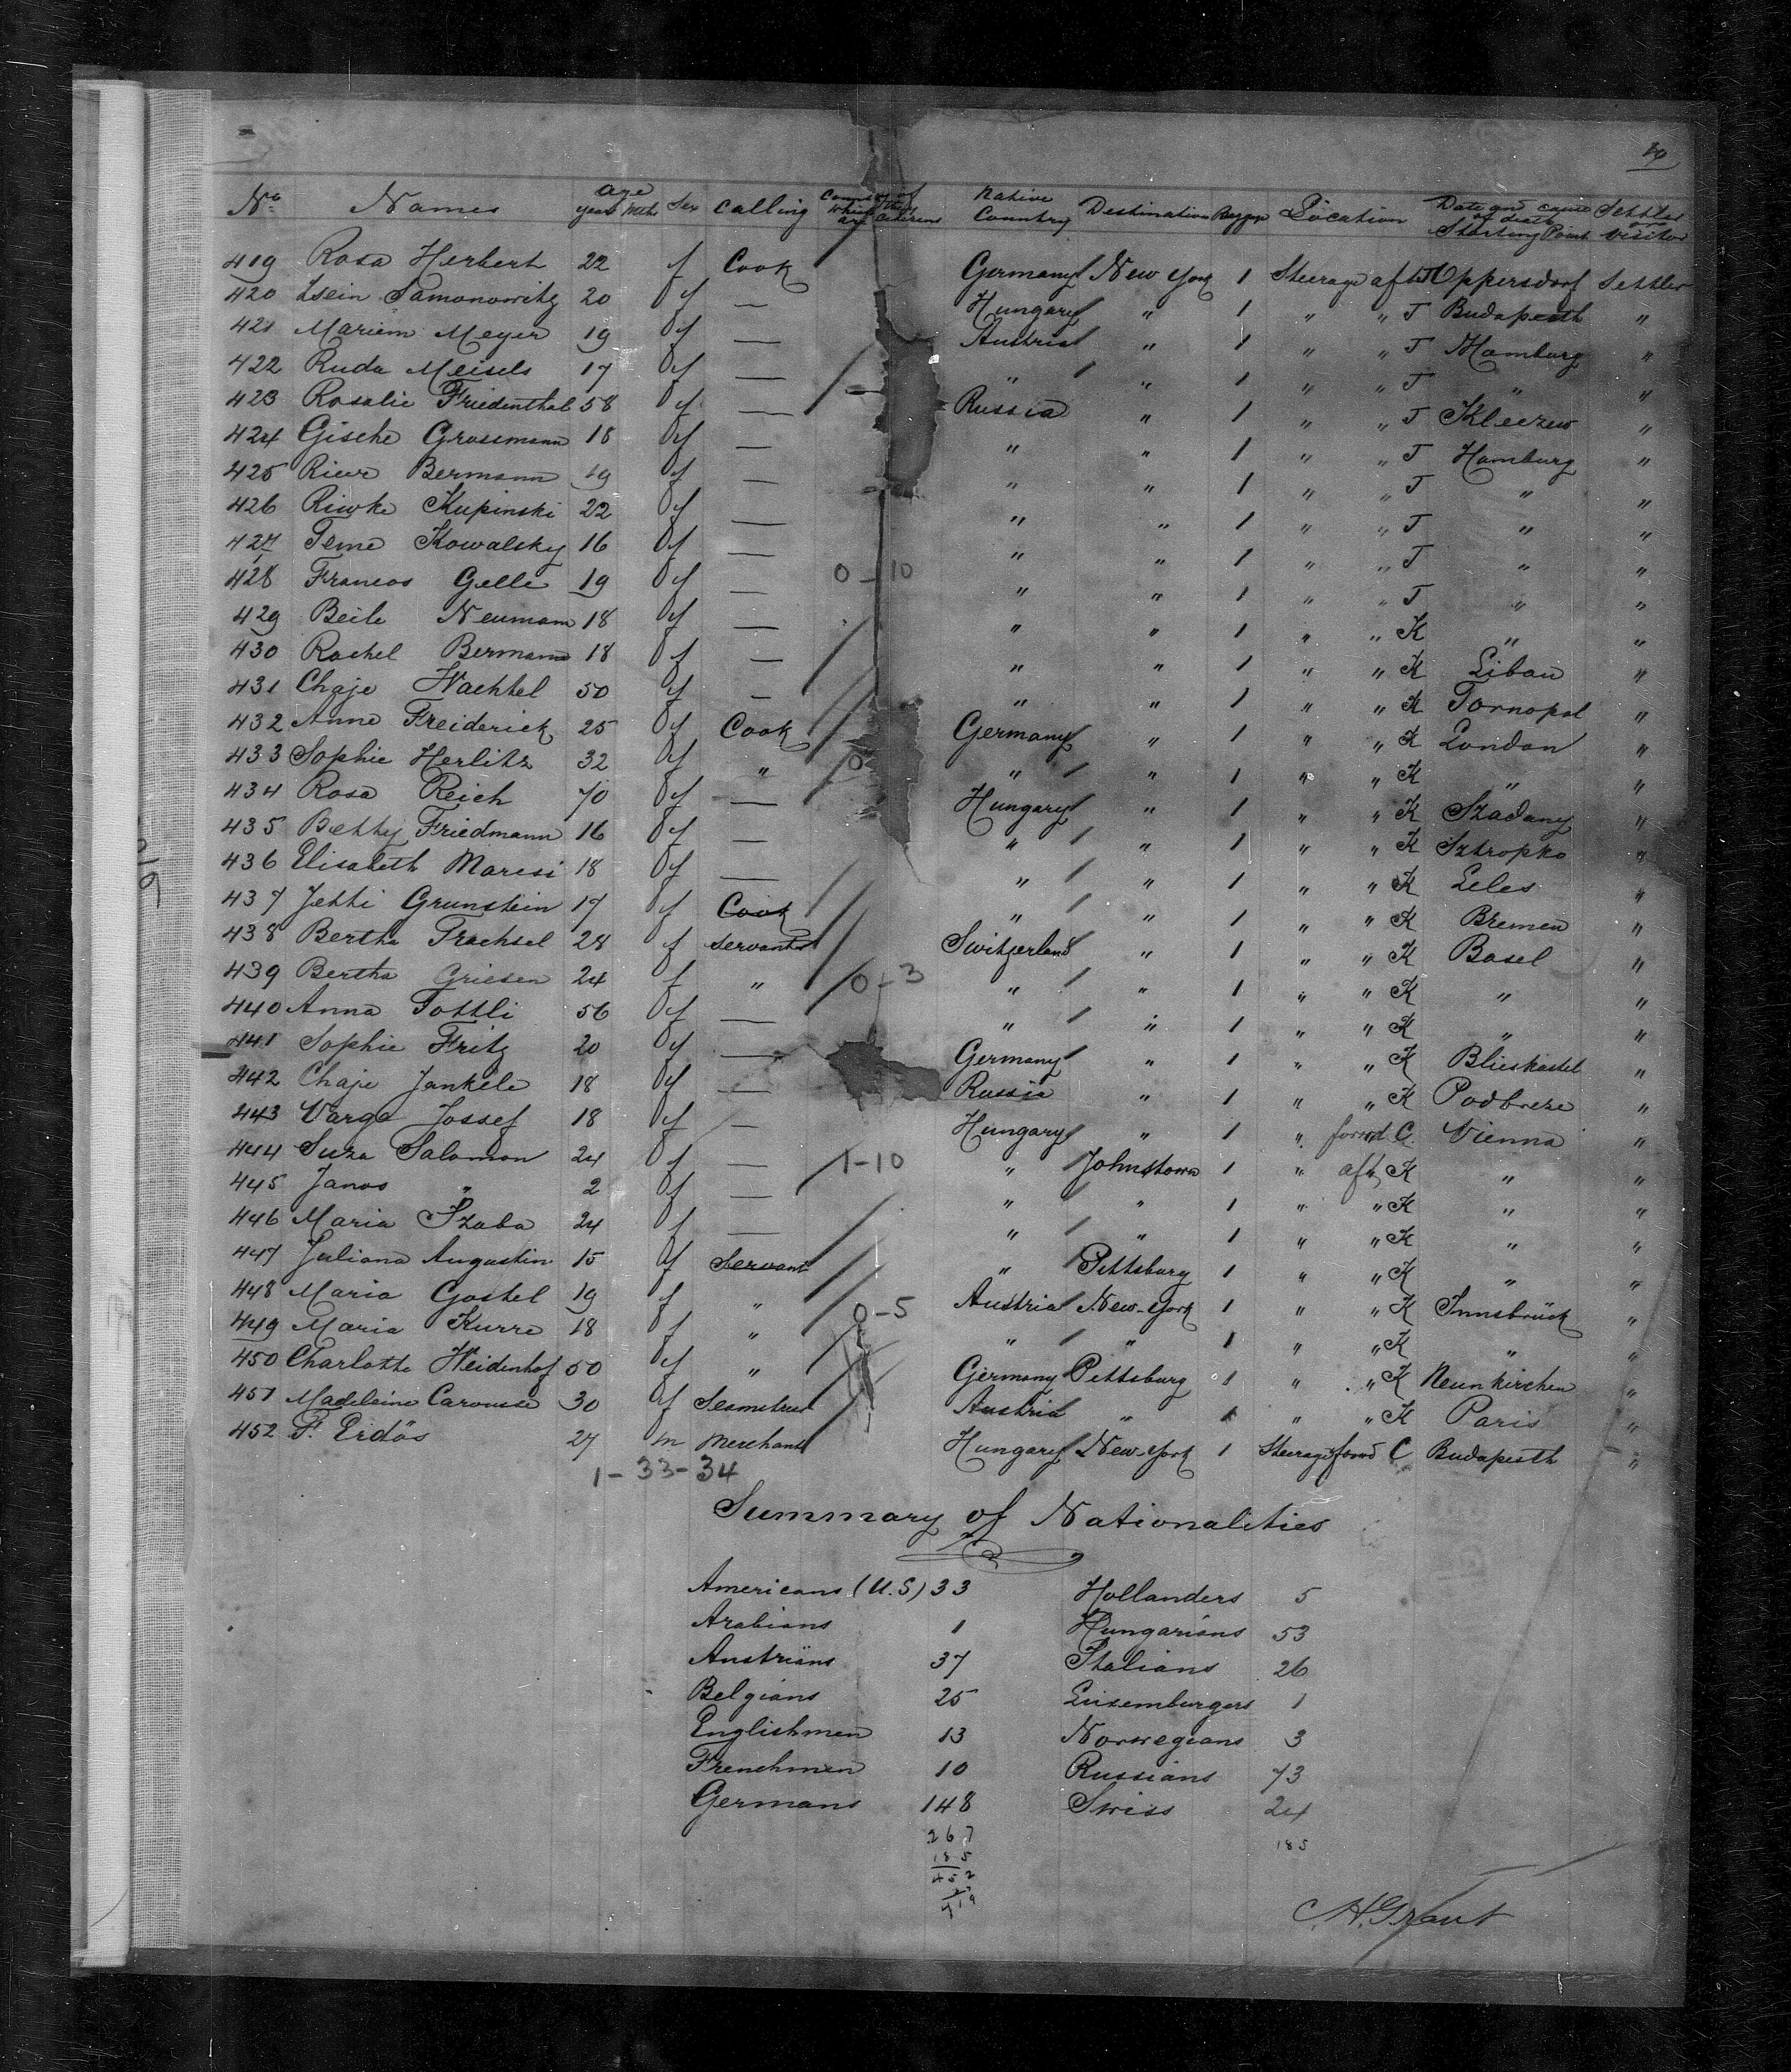 No Names age years Mths Sex Calling Native Country Destination Location Starting Point Settler or Visitor
419 Rosa Herbert 22 f Cook Germany New York 1 Steerage aft J Oppersdorf Settler
420 Samonowitz 20 f — Hungary " 1 " " J Budapesth "
421 Mariem Meyer 19 f — Austria " 1 " " J Hamburg "
422 Ruda Meisels 17 f — " " 1 " " J " "
423 Rosalie Friedenthal 58 f — Russia " 1 " " J Kleezew "
424 Gische Grossmann 18 f — " " 1 " " J Hamburg "
425 Bermann 19 f — " " 1 " " J " "
426 Riwke Kupinski 22 f — " " 1 " " J " "
427 Teme Kowalsky 16 f — " " 1 " " J " "
428 Francos Gelle 19 f — 0-10 " " 1 " " J " "
429 Beile Neumann 18 f — " " 1 " " K " "
430 Rachel Bermann 18 f — " " 1 " " K Libau "
431 Chaje Wachtel 50 f — " " 1 " " K Tornopol "
432 Anna Freiderick 25 f Cook Germany " 1 " " K London "
433 Sophie Herlitz 32 f " 0 " " 1 " " K " "
434 Rosa Reich 70 f — Hungary " 1 " " K Szadany "
435 Betty Friedmann 16 f — " " 1 " " K Sztropko "
436 Elisabeth Maresi 18 f — " " 1 " " K Leles "
437 Jetti Grunstein 17 f Cook " " 1 " " K Bremen "
438 Bertha Trachsel 28 f Servants Switzerland " 1 " " K Basel "
439 Bertha Griesen 24 f " 0-3 " " 1 " " K " "
440 Anna Tottli 56 f — " " 1 " " K " "
441 Sophie Fritz 20 f — Germany " 1 " " K Blieskastel "
442 Chaje Jankele 18 f — Russia " 1 " " K Podbreze "
443 Varga Jossef 18 f — Hungary " 1 " forwd C. Vienna "
444 Suza Salamon 24 f — 1-10 " Johnstown 1 " aft K " "
445 Janos " 2 f — " " 1 " " K " "
446 Maria Szaba 24 f — " " 1 " " K " "
447 Juliana Augustin 15 f Servant " Pittsburg 1 " " K " "
448 Maria Gostel 19 f " 0-5 Austria New-York 1 " " K Innsbrück "
449 Maria Kurre 18 f " " " 1 " " K " "
450 Charlotte Weidenhof 50 f " Germany Pittsburg 1 " " K Neunkirchen "
451 Madeleine Carousse 30 f Seamstress Austria " 1 " " K Paris "
452 F. Erdös 27 m Merchant Hungary New-York 1 Steerage forwd C Budapesth "
1-33-34
Summary of Nationalities
Americans (U.S) 33 Hollanders 5
Arabians 1 Hungarians 53
Austrians 37 Italians 26
Belgians 25 Luxemburgers 1
Englishmen 13 Norwegians 3
Frenchmen 10 Russians 73
Germans 148 Swiss 24
267 185
185
452
419
Grant